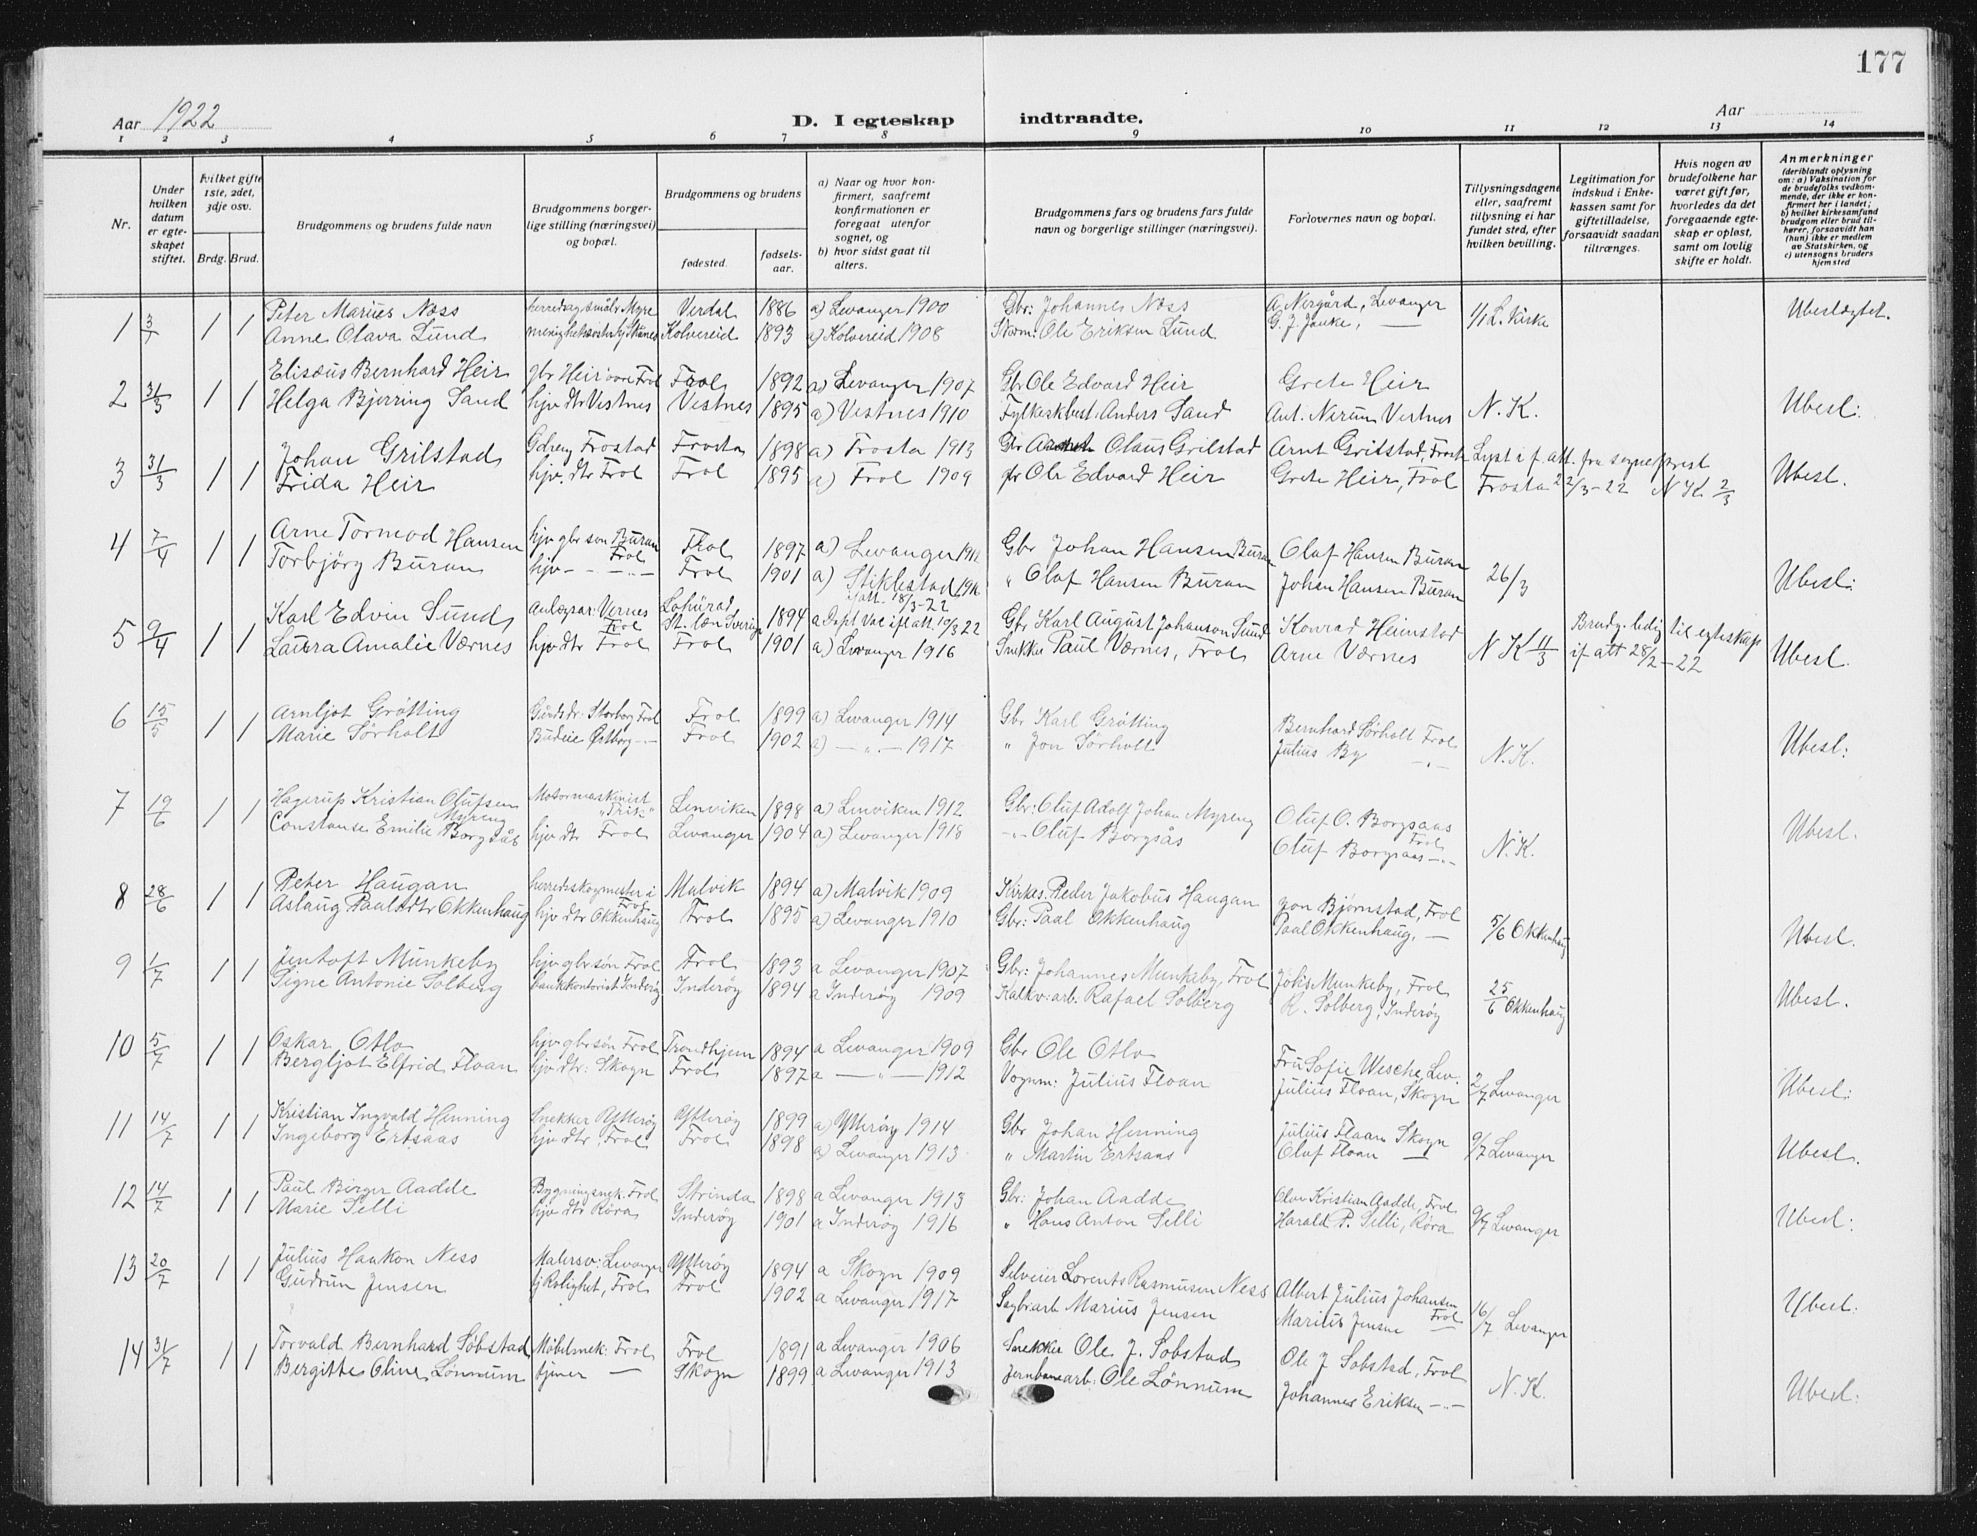 177
Aar 1922
D. I egteskap indtraadte.
Aar
1 2 3 4 5 6 7 8 9 10 11 12 13 14
Nr.
Under hvilken datum er egteskapet stiftet.
Hvilket gifte 1ste, 2det, 3dje osv.
Brdg. Brud.
Brudgommens og brudens fulde navn
Brudgommens borgerlige stilling (næringsvei) og bopæl.
Brudgommens og brudens
fødested.
fødselsaar.
a) Naar og hvor konfirmert, saafremt konfirmationen er foregaat utenfor sognet, og
b) hvor sidst gaat til alters.
Brudgommens fars og brudens fars fulde navn og borgerlige stillinger (næringsvei).
Forlovernes navn og bopæl.
Tillysningsdagene eller, saafremt tillysning ei har fundet sted, efter hvilken bevilling.
Legitimation for indskud i Enkekassen samt for giftetilladelse, forsaavidt saadan tiltrænges.
Hvis nogen av brudefolkene har været gift før, hvorledes da det foregaaende egteskap er opløst, samt om lovlig skifte er holdt.
Anmerkninger (deriblandt oplysning om: a) Vaksination for de brudefolks vedkommende, der ikke er konfirmert her i landet; b) hvilket kirkesamfund brudgom eller brud tilhører, forsaavidt han (hun) ikke er medlem av Statskirken, og c) utensogns bruders hjemsted
1 3/1 1 1 Peter Marius Næss Verdal 1886 a) Levanger 1900 Gbr: Johannes Næss A. Nergård, Levanger 1/1 L. kirke Ubeslegtet.
Anne Olava Lund Kolvereid 1893 a) Kolvereid 1908 Ole Eriksen Lund G. J. Janke, —
2 31/3 1 1 Elisæus Bernhard Heir gbr Heir Frol Frol 1892 a) Levanger 1907 Gbr Ole Edvard Heir Grete Heir N. K. Ubesl:
Helga Bjerring Sand hjv. dtr Vestnes Vestnes 1895 a) Vestnes 1910 Fylkeskbest. Anders Sand Ant. Nerum Vestnes
3 31/3 1 1 Johan Grilstad Gdreng Frostad Frosta 1898 a) Frosta 1913 Gbr Olaus Grilstad Arnt Grilstad, Frosta Lyst i f. att. fra sogneprest Ubesl.
Frida Heir hjv. dtr Frol Frol 1895 a) Frol 1909 Ole Edvard Heir Grete Heir, Frol Frosta 22/3-22 N K 2/3
4 7/4 1 1 Arne Tormod Hansen hjv gbr søn Buran Frol Frol 1897 a) Levanger Gbr Johan Hansen Buran Olaf Hansen Buran 26/3 Ubesl:
Torbjörg Buran hjv — Frol 1901 a) Stiklestad " Olaf Hansen Buran Johan Hansen Buran
5 9/4 1 1 Karl Edvin Sund Vernes Frol 1894 att. 18/3-22 Gbr Karl August Johanson Sund Konrad Heimstad N K 11/3 Brudg. ledig til egteskap Ubesl.
Laura Amalie Værnes hjv dtr Frol Frol 1901 a) Levanger 1916 Snekker Paul Værnes, Frol Arne Værnes if att 28/2-22
6 15/5 1 1 Arnljot Grötting Gårdsdr: Storborg Frol Frol 1899 a) Levanger 1914 Gbr Karl Grötting Bernhard Sörholt Frol N. K. Ubesl:
Marie Sörholt Budeie Östborg -"- Frol 1902 a) — " — 1917 " Jon Sörholt Julius By -"-
7 19/6 1 1 Hagerup Kristian Olufsen Myreng Motormaskinist Lenviken 1898 a) Lenviken 1912 Gbr: Oluf Adolf Johan Myreng Oluf O. Borgsaas Frol N. K. Ubesl.
Constanse Emilie Borgsås hjv dtr Frol Levanger 1904 a) Levanger 1918 -"- Oluf Borgsås Oluf Borgsaas -"-
8 28/6 1 1 Peter Haugan herredsskogmester i Frol Malvik 1894 a) Malvik 1909 Kirkes. Peder Jakobus Haugan Jon Bjørnstad, Frol 5/6 Okkenhaug Ubesl.
Aslaug Paulsdtr Okkenhaug hjv dtr Okkenhaug Frol 1895 a) Levanger 1910 Gbr: Paal Okkenhaug Paal Okkenhaug, —
9 1/7 1 1 Jentoft Munkeby hjv gbrsön Frol Frol 1893 a Levanger 1907 Gbr: Johannes Munkeby, Frol Johs Munkeby, Frol 25/6 Okkenhaug Ubesl.
Signe Antonie Solberg bankkontorist Inderöy Inderöy 1894 a Inderöy 1909 Kalkv: arb. Rafael Solberg R. Solberg, Inderöy
10 5/7 1 1 Oskar Otlo hjv gbrsön Frol Trondhjem 1894 a Levanger 1909 Gbr Ole Otlo Fru Sofie Wesche, Lev. 2/7 Levanger Ubesl:
Bergljot Elfrid Floan hjv dtr: Skogn Frol 1897 a — " — 1912 Vognm: Julius Floan Julius Floan, Skogn
11 14/7 1 1 Kristian Ingvald Henning Snekker Ytteröy Ytteröy 1899 a) Ytteröy 1914 Gbr Johan Henning Julius Floan Skogn 9/7 Levanger Ubesl.
Ingeborg Ertsaas hjv dtr, Frol Frol 1898 a) Levanger 1913 " Martin Ertsaas Olaf Floan —
12 14/7 1 1 Paul Birger Aadde Bygningssnek. Frol Strinda 1898 a Levanger 1913 Gbr: Johan Aadde Olav Kristian Aadde, Frol 9/7 Levanger Ubesl:
Marie Selli hjv dtr Röra Inderöy 1901 a Inderöy 1916 " Hans Anton Selli Harald P. Selli, Röra
13 20/7 1 1 Julius Haakon Ness Malersv: Levanger Ytteröy 1894 a Skogn 1909 Selveier Lorents Rasmusen Ness Albert Julius Johansen Frol 16/7 Levanger Ubesl:
Gudrun Jensen Rolighet, Frol Frol 1902 a Levanger 1917 Sagbrarb Marius Jensen Marius Jensen —
14 31/7 1 1 Torvald Bernhard Söbstad Möbelsnek: Frol Frol 1891 a Levanger 1906 Snekker Ole J. Sobstad Ole J Sobstad, Frol N. K. Ubesl:
Bergitte Oline Lönnum tjener — Skogn 1899 a Levanger 1913 Jernbanearb: Ole Lönnum Johannes Eriksen -"-